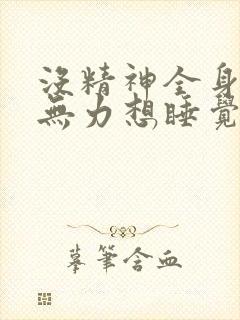 沒精神全身
無力想睡覺
摹筆含血